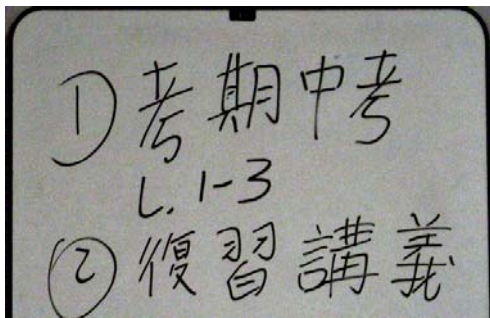 1) 考期中考
L. 1-3
② 復習講義